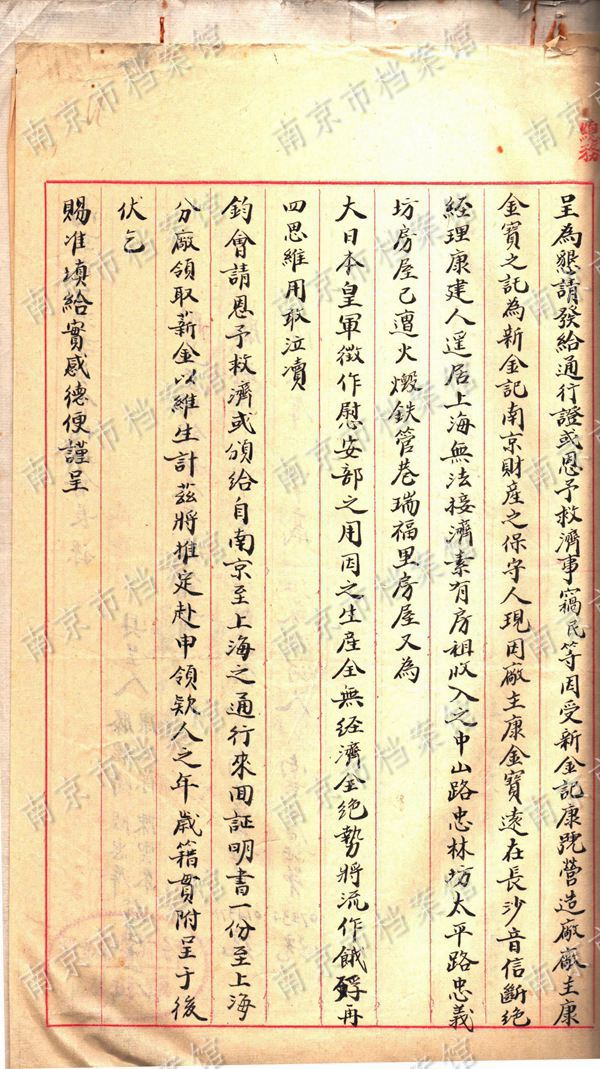 總務
呈為懇請發給通行證或恩予救濟事竊民等因受新金記康號營造廠廠主康
金寶之託為新金記南京財產之保守人現因廠主康金寶遠在長沙音信斷絕
經理康建人遥居上海無法接濟素有房租收入之中山路忠林坊太平路忠義
坊房屋已遭火燬鉄管巷瑞福里房屋又為
大日本皇軍徵作慰安部之用因之生産全無經濟全絕勢將流作餓殍再
四思維用敢泣凟
鈞會請恩予救濟或頒給自南京至上海之通行來回証明書一份至上海
分廠領取薪金以維生計茲將推定赴申領欵人之年歲籍貫附呈于後
伏乞
賜准填給實感德便謹呈
南京市档案馆